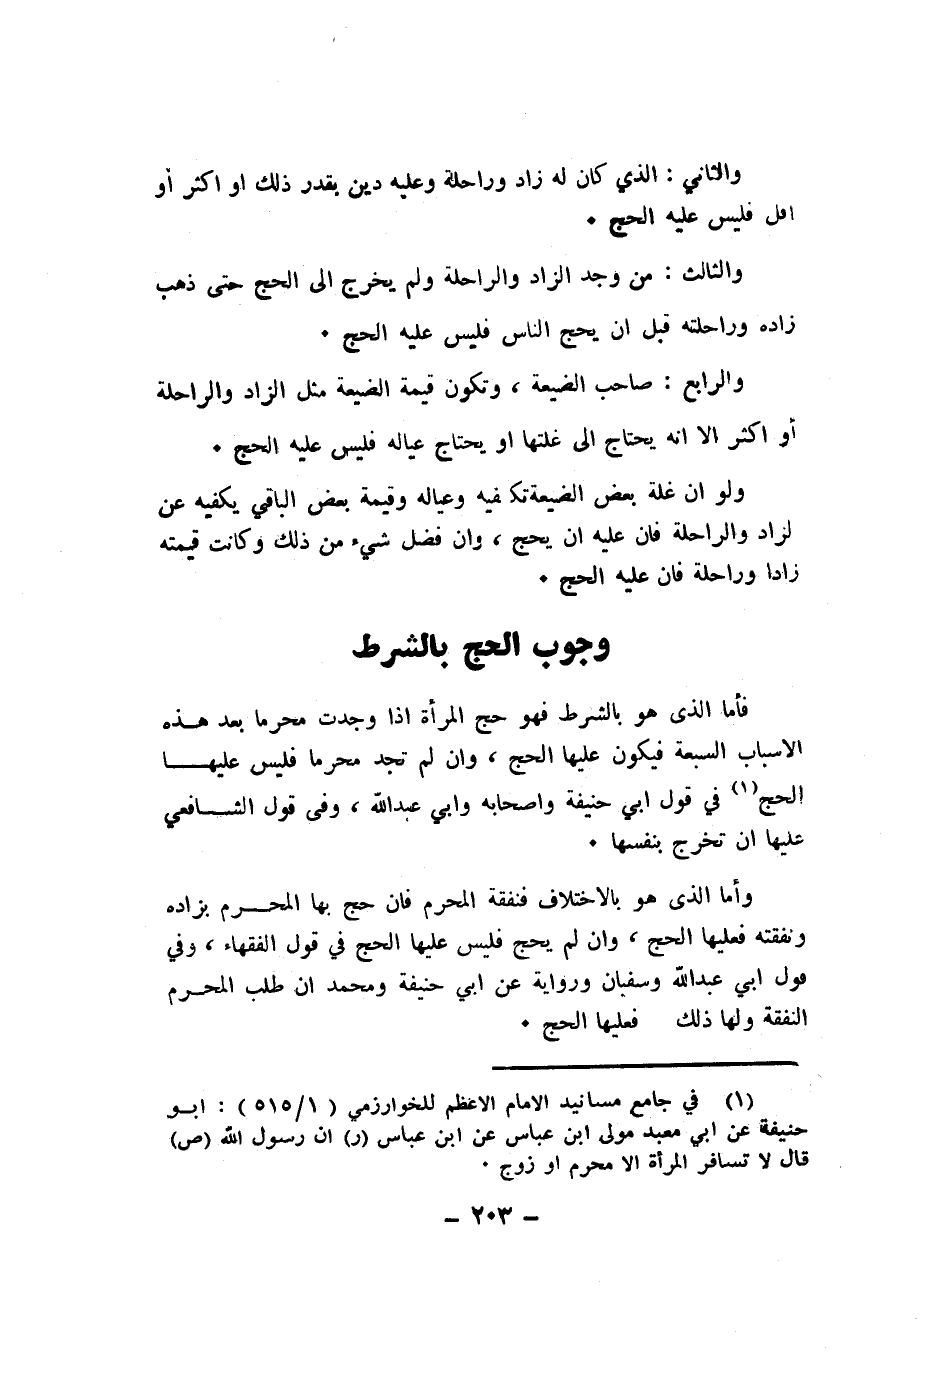 والثاني : الذي كان له زاد وراحلة وعليه دين بقدر ذلك او اكثر أو
اقل فليس عليه الحج .
والثالث : من وجد الزاد والراحلة ولم يخرج الى الحج حتى ذهب
زاده وراحلته قبل ان يحج الناس فليس عليه الحج .
والرابع : صاحب الضيعة ، وتكون قيمة الضيعة مثل الزاد والراحلة
أو اكثر الا انه يحتاج الى غلتها او يحتاج عياله فليس عليه الحج .
ولو ان غلة بعض الضيعة تكفيه وعياله وقيمة بعض الباقي يكفيه عن
لزاد والراحلة فان عليه ان يحج ، وان فضل شيء من ذلك وكانت قيمته
زادا وراحلة فان عليه الحج .
وجوب الحج بالشرط
فأما الذى هو بالشرط فهو حج المرأة اذا وجدت محرما بعد هذه
الاسباب السبعة فيكون عليها الحج ، وان لم تجد محرما فليس عليها
الحج(١) في قول ابي حنيفة واصحابه وابي عبدالله ، وفى قول الشافعي
عليها ان تخرج بنفسها .
وأما الذى هو بالاختلاف فنفقة المحرم فان حج بها المحرم بزاده
ونفقته فعليها الحج ، وان لم يحج فليس عليها الحج في قول الفقهاء ، وفي
قول ابي عبدالله وسفيان ورواية عن ابي حنيفة ومحمد ان طلب المحرم
النفقة ولها ذلك فعليها الحج .
(١) في جامع مسانيد الامام الاعظم للخوارزمي ( ٥١٥/١ ) : ابو
حنيفة عن ابي معبد مولى ابن عباس عن ابن عباس (ر) ان رسول الله (ص)
قال لا تسافر المرأة الا محرم او زوج .
- ٢٠٣ -